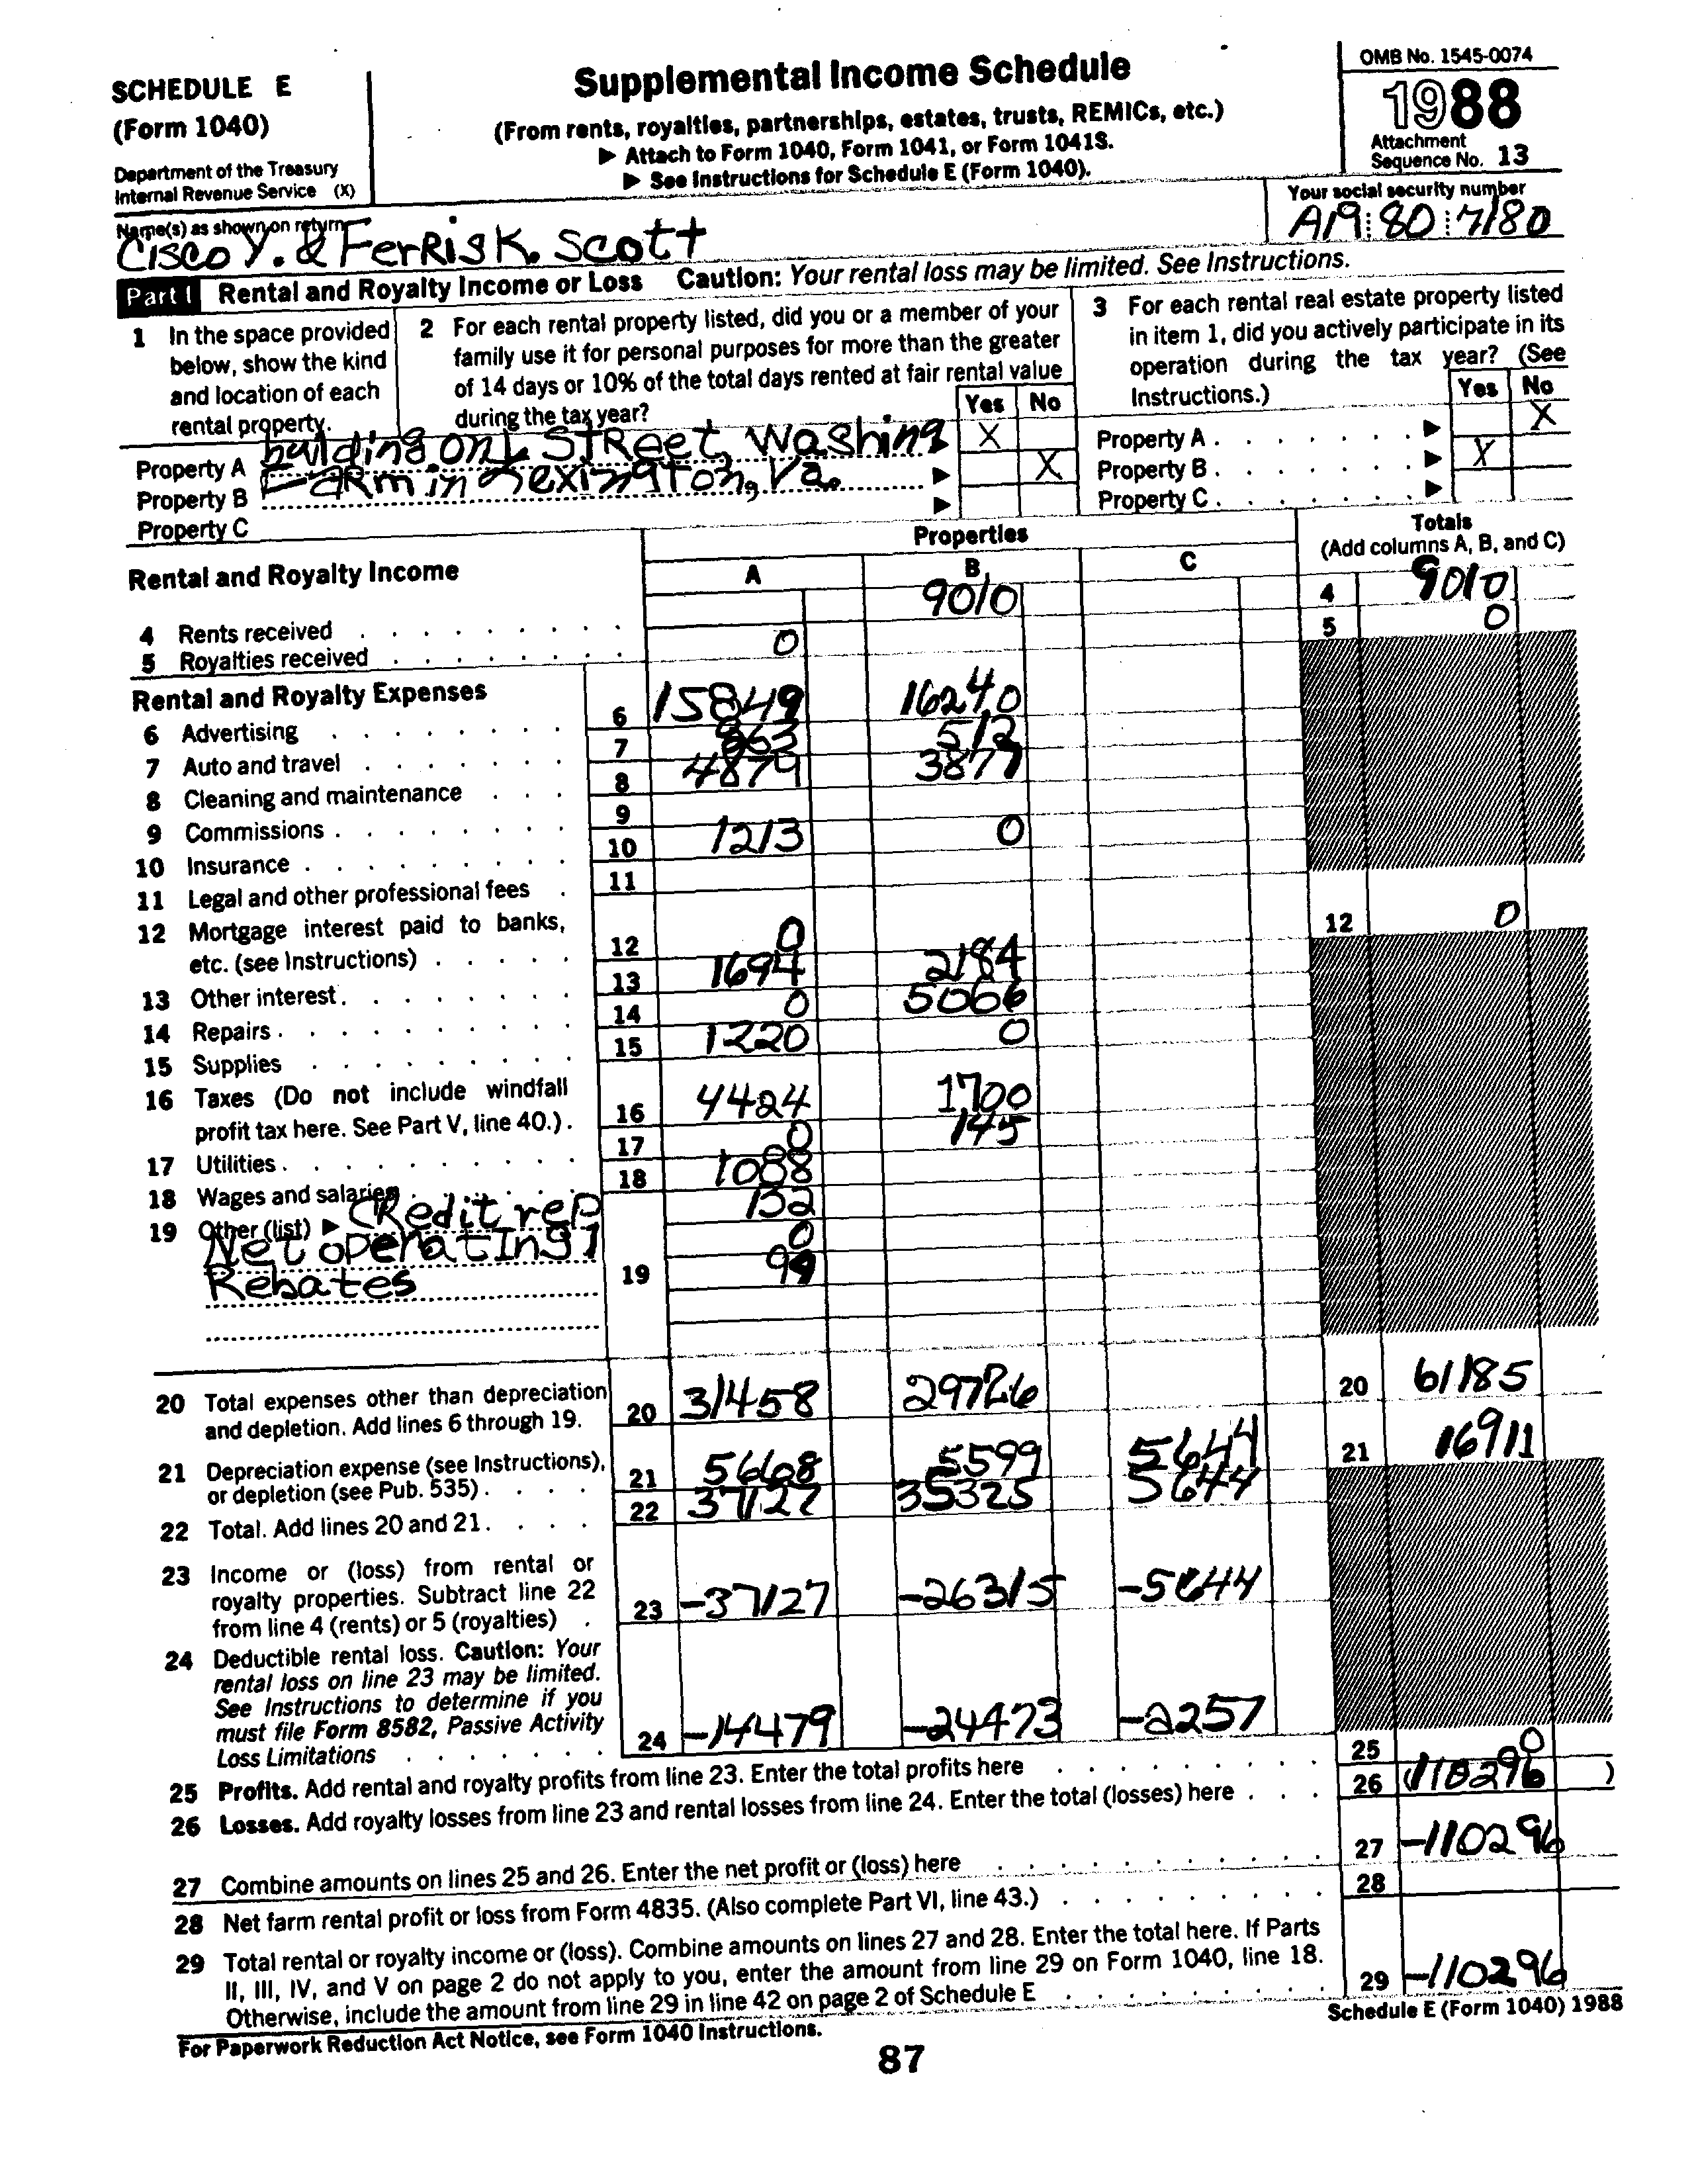 SCHEDULE E
(Form 1040)
Department of the Treasury
Internal Revenue Service (X)
Supplemental Income Schedule
(From rents, royalties, partnerships, estates, trusts, REMICs, etc.)
▶ Attach to Form 1040, Form 1041, or Form 1041S.
▶ See Instructions for Schedule E (Form 1040).
OMB No. 1545-0074
1988
Attachment
Sequence No. 13
Name(s) as shown on return
Cisco Y. & Ferris K. Scott
Your social security number
A19 80 7180
Part I Rental and Royalty Income or Loss Caution: Your rental loss may be limited. See Instructions.
1 In the space provided
below, show the kind
and location of each
rental property.
2 For each rental property listed, did you or a member of your
family use it for personal purposes for more than the greater
of 14 days or 10% of the total days rented at fair rental value
during the tax year?
Yes No
3 For each rental real estate property listed
in item 1, did you actively participate in its
operation during the tax year? (See
Instructions.)
Yes No
Property A building on L Street, Washing X Property A . . . . . . . ▶ X
Property B Farm in Lexington, Va. ▶ X Property B . . . . . . . ▶ X
Property C ▶ Property C . . . . . . . ▶
Rental and Royalty Income
Properties
A B C
Totals
(Add columns A, B, and C)
4 Rents received 9010 4 9010
5 Royalties received 0 5 0
Rental and Royalty Expenses
6 Advertising 6 15849 16240
7 Auto and travel 7 863 512
8 Cleaning and maintenance 8 4879 3877
9 Commissions 9
10 Insurance 10 1213 0
11 Legal and other professional fees 11
12 Mortgage interest paid to banks,
etc. (see Instructions) 12 0 12 0
13 Other interest 13 1694 2184
14 Repairs 14 0 5066
15 Supplies 15 1220 0
16 Taxes (Do not include windfall
profit tax here. See Part V, line 40.) 16 4424 1700
17 Utilities 17 0 145
18 Wages and salaries 18 1088
19 Other (list) ▶ Credit rep 132
Net operating l 0
Rebates 19 99
20 Total expenses other than depreciation
and depletion. Add lines 6 through 19. 20 31458 29726 20 61185
21 Depreciation expense (see Instructions),
or depletion (see Pub. 535) 21 5668 5599 5644 21 16911
22 Total. Add lines 20 and 21 22 37127 35325 5644
23 Income or (loss) from rental or
royalty properties. Subtract line 22
from line 4 (rents) or 5 (royalties) 23 -37127 -26315 -5644
24 Deductible rental loss. Caution: Your
rental loss on line 23 may be limited.
See Instructions to determine if you
must file Form 8582, Passive Activity
Loss Limitations 24 -14479 -24473 -2257
25 Profits. Add rental and royalty profits from line 23. Enter the total profits here 25 0
26 Losses. Add royalty losses from line 23 and rental losses from line 24. Enter the total (losses) here 26 (110296)
27 Combine amounts on lines 25 and 26. Enter the net profit or (loss) here 27 -110296
28 Net farm rental profit or loss from Form 4835. (Also complete Part VI, line 43.) 28
29 Total rental or royalty income or (loss). Combine amounts on lines 27 and 28. Enter the total here. If Parts
II, III, IV, and V on page 2 do not apply to you, enter the amount from line 29 on Form 1040, line 18.
Otherwise, include the amount from line 29 in line 42 on page 2 of Schedule E 29 -110296
For Paperwork Reduction Act Notice, see Form 1040 Instructions.
Schedule E (Form 1040) 1988
87